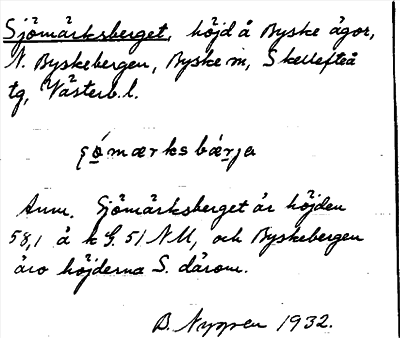 Sjömärksberget, höjd å Byske ägor,
N. Byskebergen, Byske m, Skellefteå
tg, Västerb. l.
ʂö́mærksbærja
Anm. Sjömärksberget är höjden
58,1 å k G. 51 NU, och Byskebergen
äro höjderna S. därom.
B. Nygren 1932.